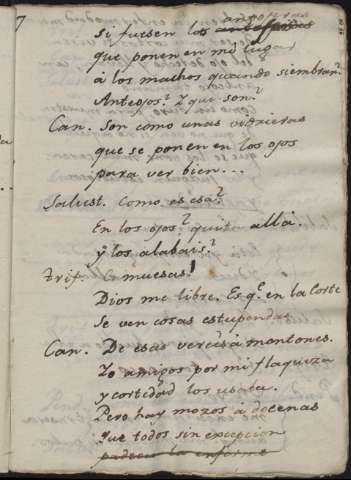 anteojeras
Si fuesen los anteojeras
que ponen en mi Lugar
á los machos quando siembran.
Anteojos? Y que son?
Can. Son como unas vidrieras
que se ponen en los ojos
para ver bien...
Salust. Como es esa?
En los ojos? quita allá.
y los alabais?
Trif. O muesas!
Dios me libre. Es q.e en la Corte
se ven cosas estupendas.
Can. De esas vereis á montones.
Yo amigos por mi flaqueza
y cortedad los usaba.
Pero hay mozos á docenas
que todos sin excepcion
padecen la enferme